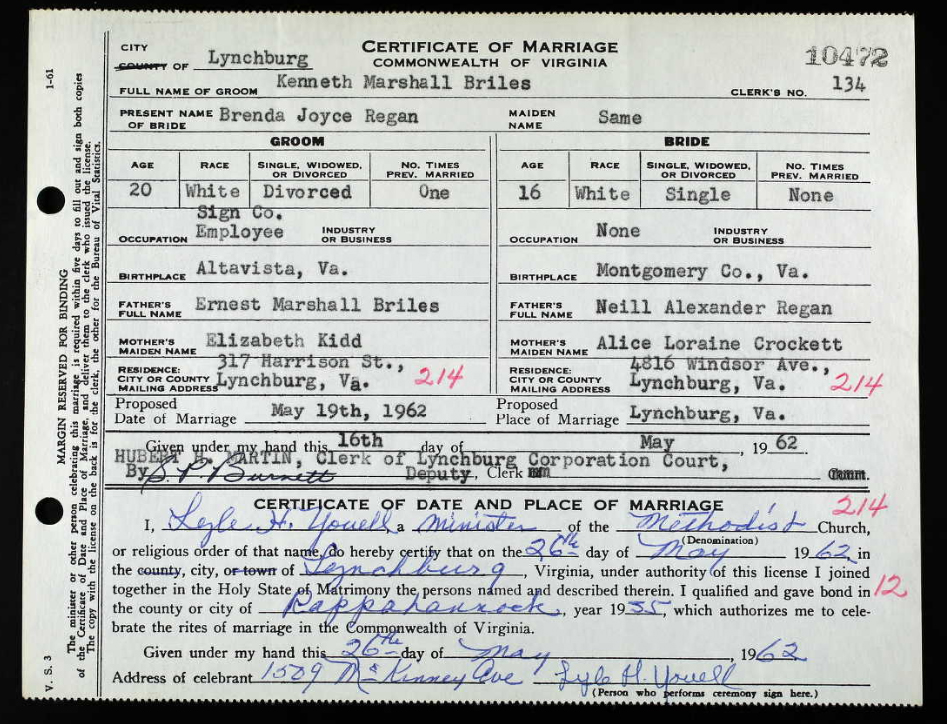 CITY
COUNTY OF Lynchburg
CERTIFICATE OF MARRIAGE
COMMONWEALTH OF VIRGINIA
10472
FULL NAME OF GROOM Kenneth Marshall Briles CLERK'S NO. 134
PRESENT NAME OF BRIDE Brenda Joyce Regan MAIDEN NAME Same
GROOM BRIDE
AGE RACE SINGLE, WIDOWED, OR DIVORCED NO. TIMES PREV. MARRIED AGE RACE SINGLE, WIDOWED, OR DIVORCED NO. TIMES PREV. MARRIED
20 White Divorced One 16 White Single None
OCCUPATION Sign Co. Employee INDUSTRY OR BUSINESS OCCUPATION None INDUSTRY OR BUSINESS
BIRTHPLACE Altavista, Va. BIRTHPLACE Montgomery Co., Va.
FATHER'S FULL NAME Ernest Marshall Briles FATHER'S FULL NAME Neill Alexander Regan
MOTHER'S MAIDEN NAME Elizabeth Kidd MOTHER'S MAIDEN NAME Alice Loraine Crockett
RESIDENCE: CITY OR COUNTY MAILING ADDRESS 317 Harrison St., Lynchburg, Va. 214 RESIDENCE: CITY OR COUNTY MAILING ADDRESS 4816 Windsor Ave., Lynchburg, Va. 214
Proposed Date of Marriage May 19th, 1962 Proposed Place of Marriage Lynchburg, Va.
Given under my hand this 16th day of May, 1962.
HUBERT H. MARTIN, Clerk of Lynchburg Corporation Court,
By S. P. Burnett Deputy, Clerk Court.
CERTIFICATE OF DATE AND PLACE OF MARRIAGE 214
I, Lyle H. Youell a Minister of the Methodist Church,
(Denomination)
or religious order of that name, do hereby certify that on the 26th day of May 1962 in
the county, city, or town of Lynchburg, Virginia, under authority of this license I joined
together in the Holy State of Matrimony the persons named and described therein. I qualified and gave bond in 12
the county or city of Rappahannock, year 1955, which authorizes me to cele-
brate the rites of marriage in the Commonwealth of Virginia.
Given under my hand this 26th day of May, 1962
Address of celebrant 1509 McKinney Ave Lyle H. Youell
(Person who performs ceremony sign here.)
1-61
MARGIN RESERVED FOR BINDING
The minister or other person celebrating this marriage is required within five days to fill out and sign both copies
of the Certificate of Date and Place of Marriage, and deliver them to the clerk who issued the license.
The copy with the license on the back is for the clerk, the other for the Bureau of Vital Statistics.
V. S. 3